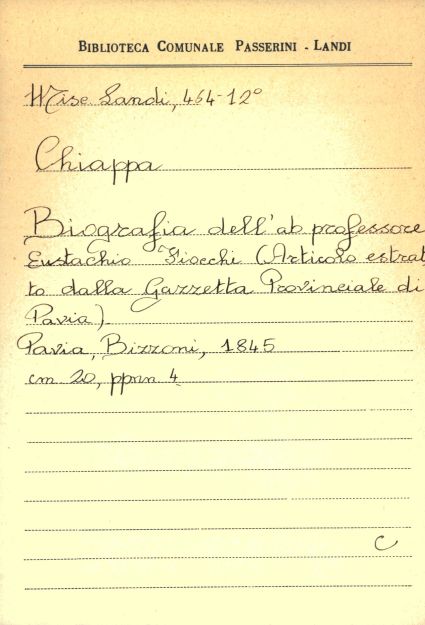 BIBLIOTECA COMUNALE PASSERINI - LANDI
Misc Landi, 464-12°
Chiappa
Biografia dell'ab professore
Eustachio Fiocchi (Articolo estrat
to dalla Gazzetta Provinciale di
Pavia)
Pavia, Bizzoni, 1845
cm 20, ppnn 4
C